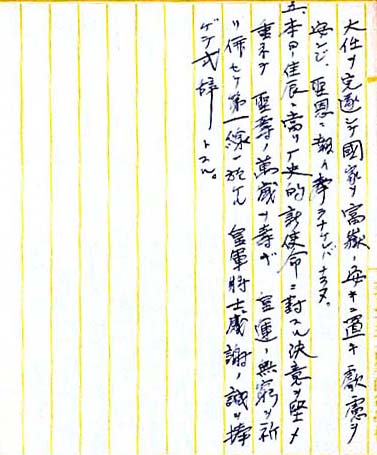 大任ヲ完遂シテ國家ヲ富嶽ノ安キニ置キ叡慮ヲ
安ンジ聖恩ニ報ヘ奉ラナケレバナラヌ。
五、本日ノ佳辰ニ當リ歴史的新使命ニ對スル決意ヲ堅メ
重ネテ聖壽ノ萬歳ヲ壽ギ皇運ノ無窮ヲ祈
リ併セテ第一線ニ於ケル皇軍将士ニ感謝ノ誠ヲ捧
ゲテ式辞トスル。